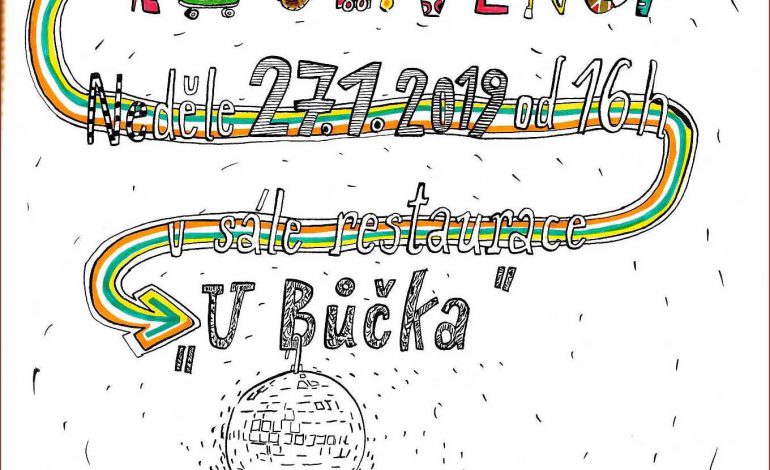 Neděle 27.1.2019 od 16h
v sále restaurace
"U Bůčka"